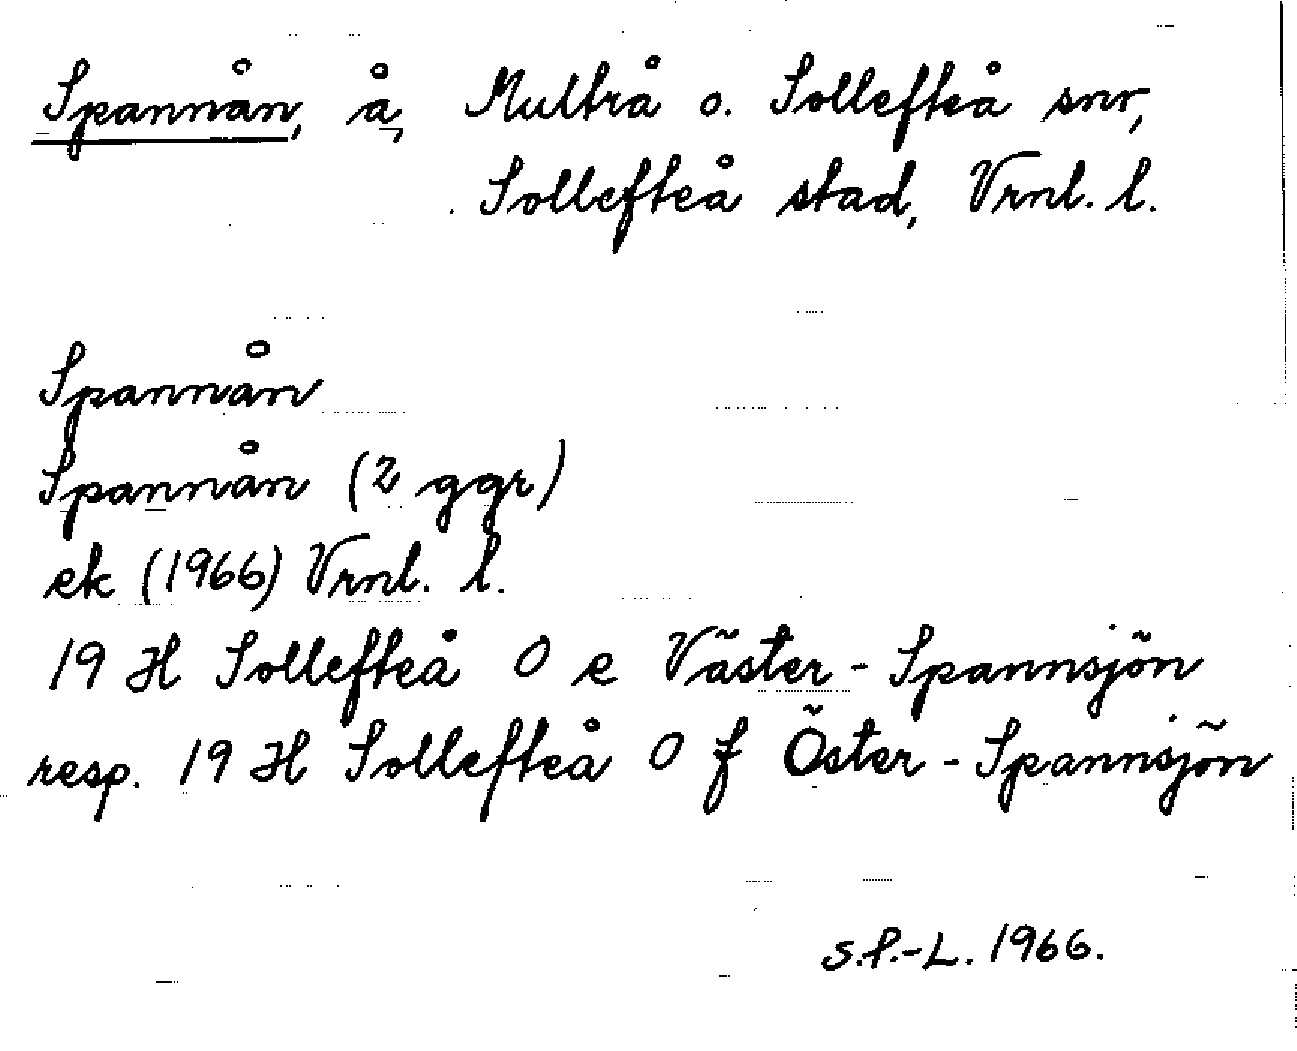 Spannån, å, Multrå o. Sollefteå snr,
Sollefteå stad, Vrnl. l.
Spannån
Spannån (2 ggr)
ek (1966) Vrnl. l.
19 H Sollefteå O e Väster-Spannsjön
resp. 19 H Sollefteå O f Öster-Spannsjön
S.P.-L. 1966.